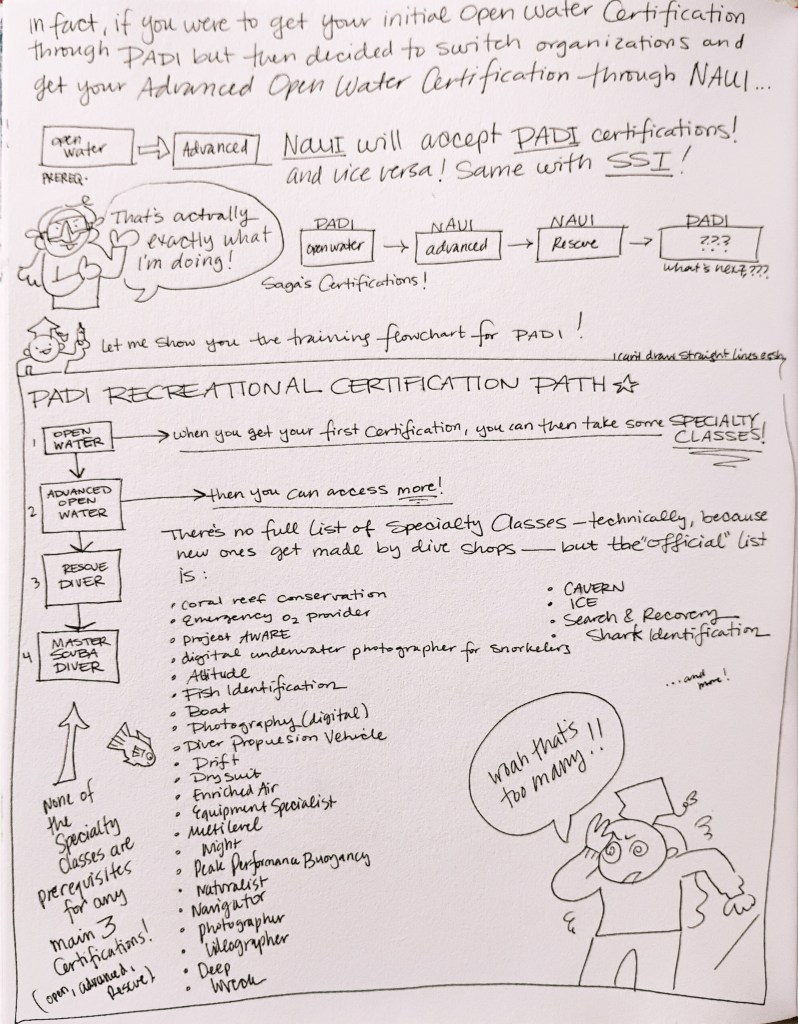 in fact, if you were to get your initial Open Water Certification
through PADI but then decided to switch organizations and
get your Advanced Open Water Certification through NAUI...
open water
Advanced
PREREQ.
NAUI will accept PADI certifications!
and vice versa! Same with SSI!
That's actually
exactly what
I'm doing!
PADI
open water
NAUI
advanced
NAUI
Rescue
PADI
???
what's next???
Saga's Certifications!
let me show you the training flowchart for PADI!
I can't draw straight lines
PADI RECREATIONAL CERTIFICATION PATH
1 OPEN
WATER
when you get your first certification, you can then take some SPECIALTY
CLASSES!
2 ADVANCED
OPEN
WATER
then you can access more!
3 RESCUE
DIVER
4 MASTER
SCUBA
DIVER
There's no full list of Specialty Classes — technically, because
new ones get made by dive shops — but the "official" list
is:
• coral reef conservation
• Emergency O2 provider
• project AWARE
• digital underwater photographer for snorkelers
• Altitude
• Fish Identification
• Boat
• Photography (digital)
• Diver Propulsion Vehicle
• Drift
• Dry suit
• Enriched Air
• Equipment Specialist
• Multilevel
• Night
• Peak Performance Buoyancy
• Naturalist
• Navigator
• photographer
• Videographer
• Deep
• Wreck
• CAVERN
• ICE
• Search & Recovery
• Shark Identification
...and
more!
None of
the
Specialty
Classes are
prerequisites
for any
main 3
Certifications!
(open, advanced,
Rescue)
woah that's
too many!!